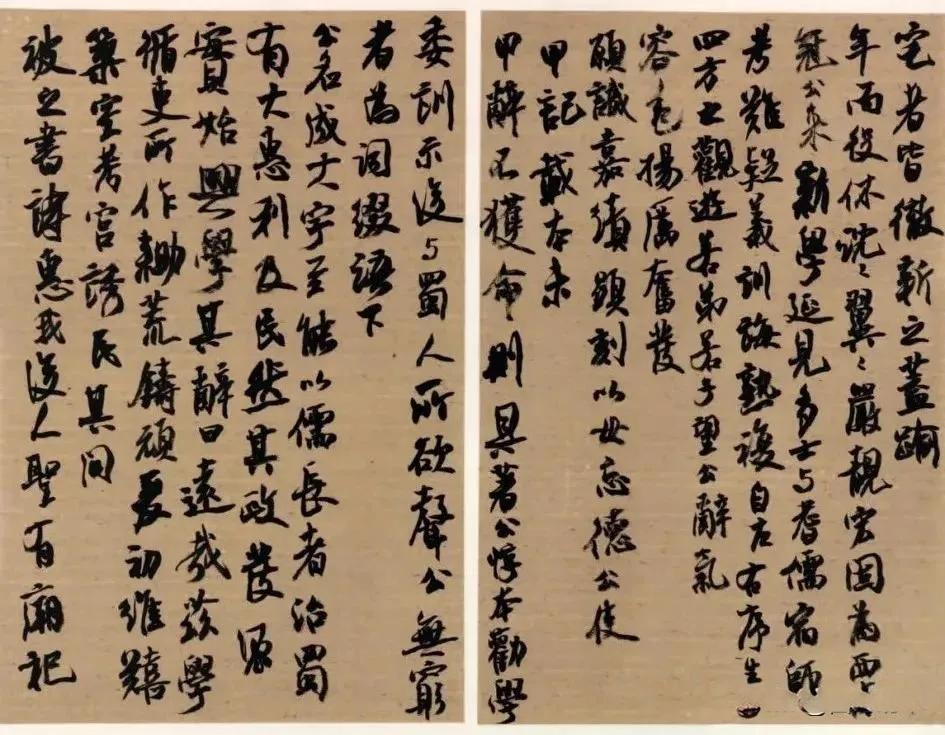 宅者皆徹新之蓋踰
年而役休沈〻翼〻嚴靚宏固為西
冠公集新學延見多士与耆儒宿師
考難疑義訓誨熟複自右序生
四方之觀遊若弟若子望公辭氣
容色揚厲奮發
願識嘉績顯刻以毋忘德公使
甲記載本末
甲辭不獲命則具著公惇本勸學
委訓示後与蜀人所欲聲公無窮
者為詞綴語下
公名成大字至能以儒長者治蜀
有大惠利及民然其政發源
實始興學其辭曰遠哉茲學
循吏所作鋤荒鑄頑夏初維囏
築室考宮誘民其間
被之書詩惠我後人聖有廟祀